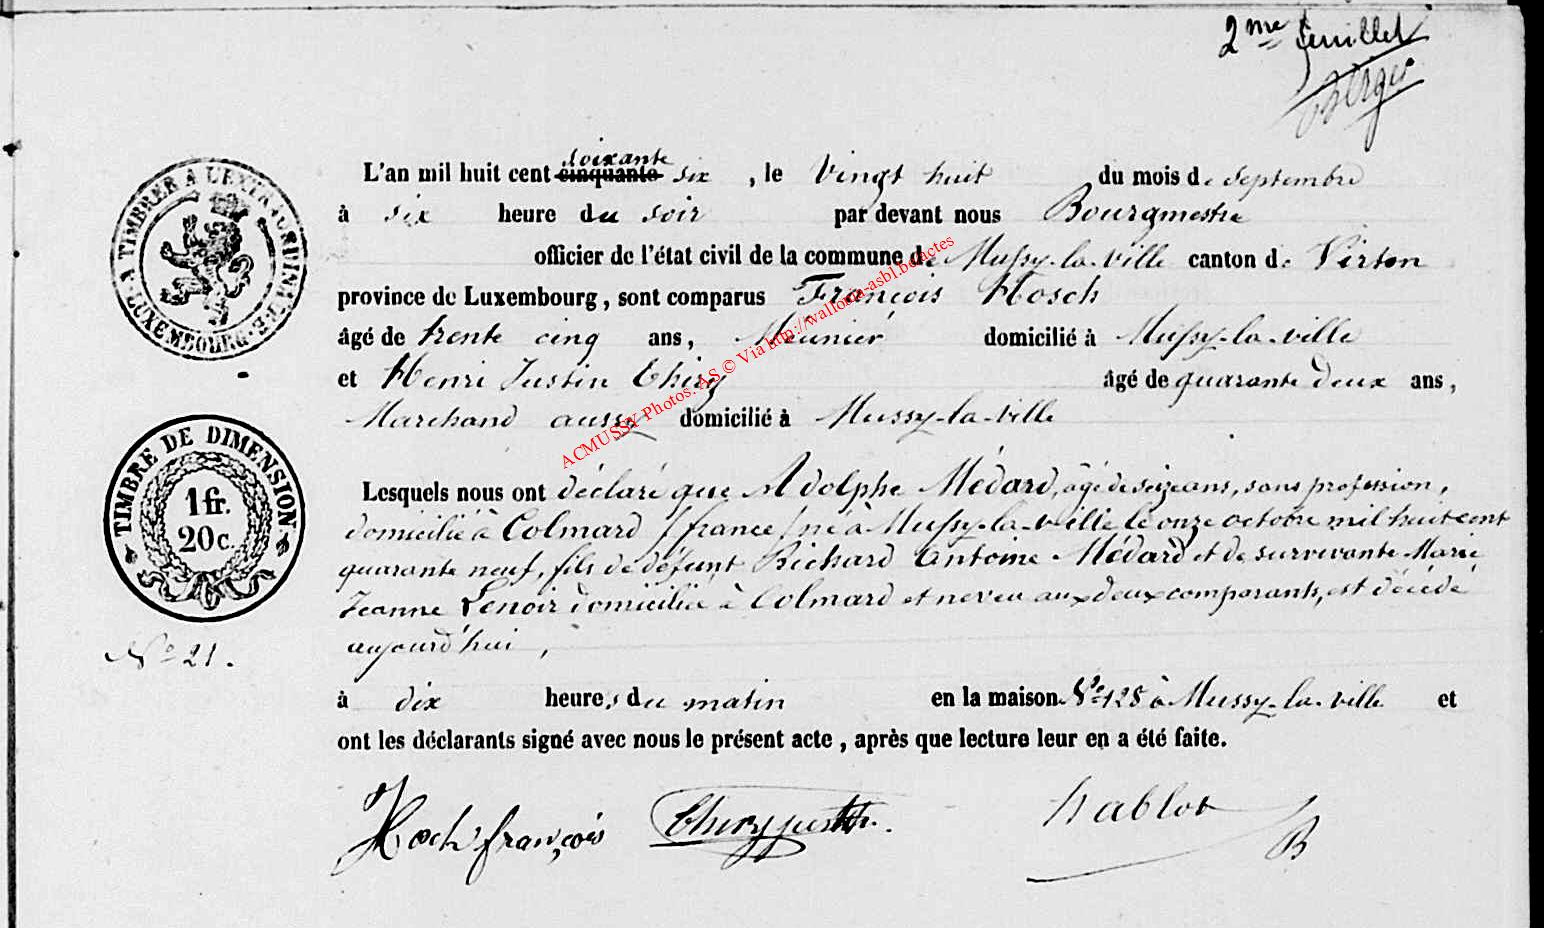 2me feuillet
Berger
A TIMBRER A L'EXTRAORDINAIRE.
LUXEMBOURG.
TIMBRE DE DIMENSION
1 fr.
20 c.
No 21.
L'an mil huit cent cinquante soixante six, le Vingt huit du mois de Septembre
à six heure du soir par devant nous Bourgmestre
officier de l'état civil de la commune de Mussy-la-Ville canton de Virton
province de Luxembourg, sont comparus François Hosch
âgé de trente cinq ans, Meunier domicilié à Mussy-la-ville
et Henri Justin Thiry âgé de quarante deux ans,
Marchand aussy domicilié à Mussy-la-ville
Lesquels nous ont déclaré que Adolphe Médard, âgé de seize ans, sans profession,
domicilié à Colmard (france) né à Mussy-la-ville le onze octobre mil huit cent
quarante neuf, fils de défunt Richard Antoine Médard et de survivante Marie
Jeanne Lenoir domiciliée à Colmard et neveu aux deux comparants, est décédé
aujourd'hui,
à dix heures du matin en la maison No 128 à Mussy-la-ville et
ont les déclarants signé avec nous le présent acte, après que lecture leur en a été faite.
Hoch françois Thiry justin. hablot
B
ACMUSSY Photos. AS © Via http://wallonia-asbl.be/actes